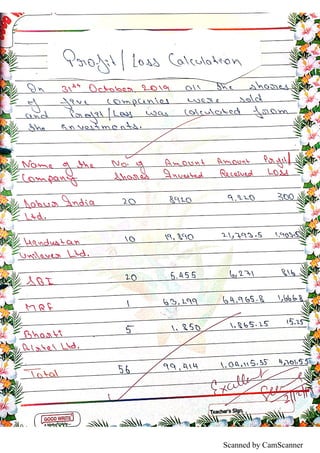 Profit/Loss Calculation
On 31st October 2019 all the shares
of five companies were sold
and Profit/Loss was calculated from
the Investments.
Name of the No. of Amount Amount Profit/
Company Shares Invested Received Loss
Dabur India 20 8920 9,220 300
Ltd.
Hindustan 10 19,890 21,793.5 1,903.5
Unilever Ltd.
SBI 20 5,455 6,271 816
MRF 1 63,299 64,965.8 1,666.8
Bharti 5 1,850 1,865.25 15.25
Airtel Ltd.
Total 56 99,414 1,04,115.55 4,701.55
Excellent
Teacher's Sign
GOOD WRITE
Scanned by CamScanner